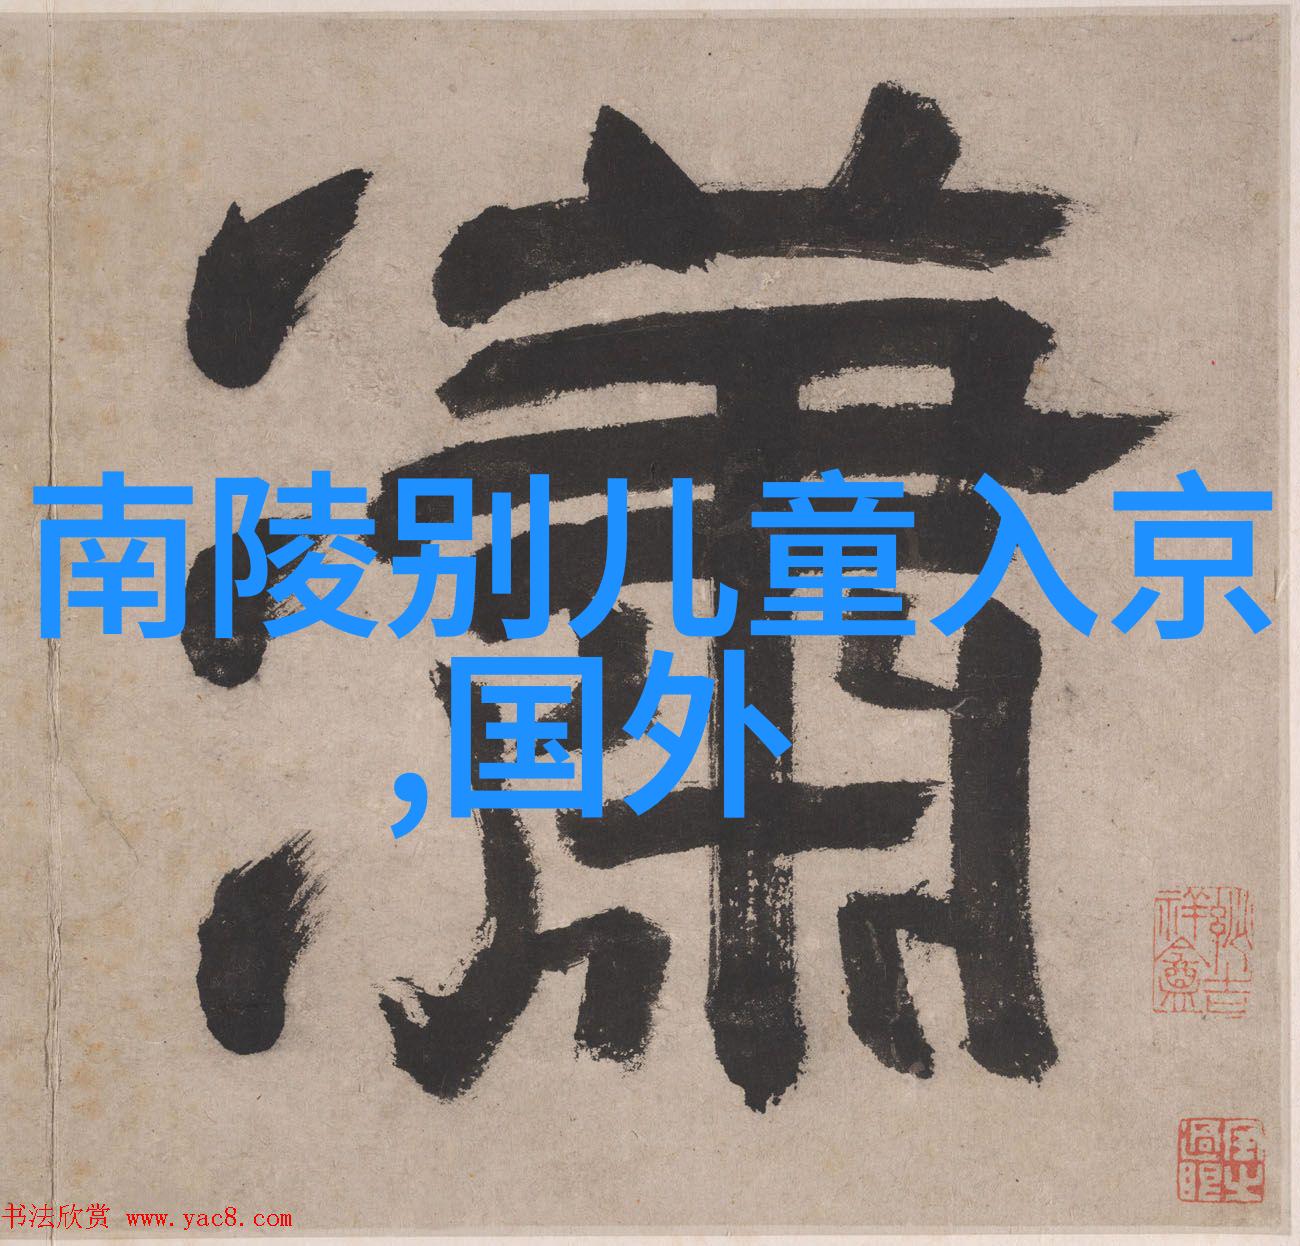 瀟
南陵别儿童入京
,国外
书法欣赏 www.yac8.com